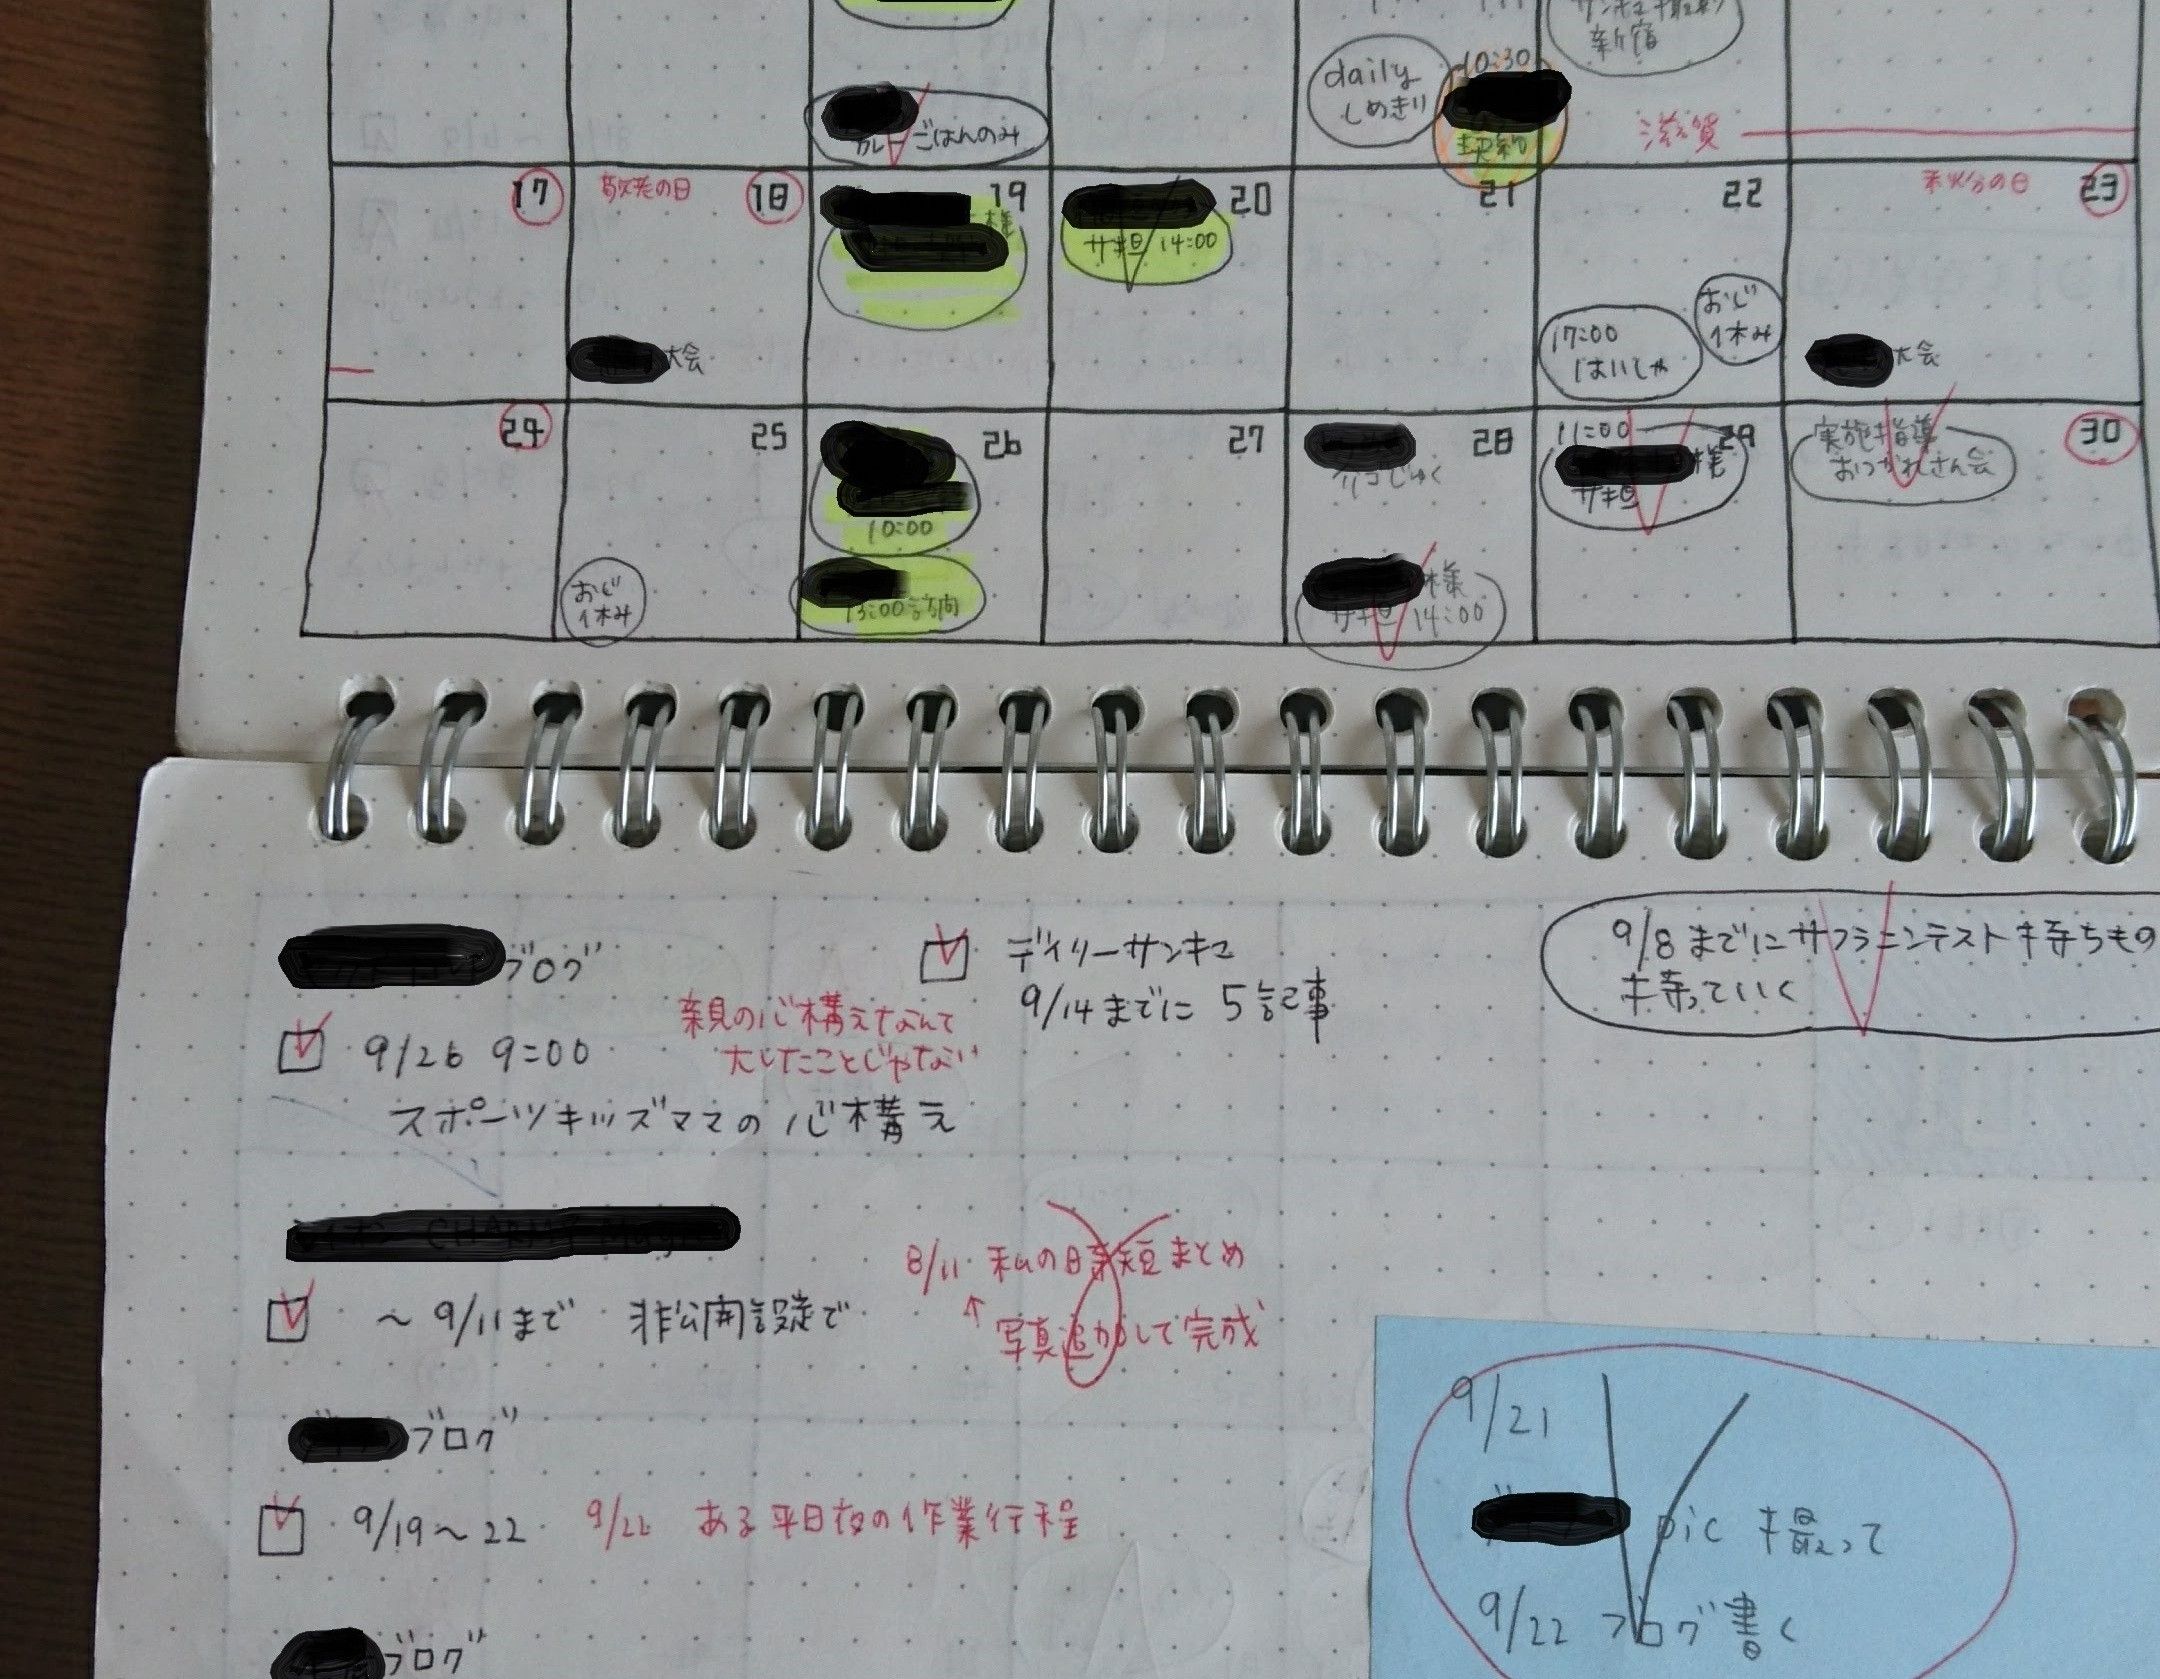 新宿
daily
しめきり
10:30
契約
滋賀
カレーごはんのみ
17
敬老の日
18
19
様
20
サ担 14:00
21
22
秋分の日
23
大会
17:00
はいしゃ
おじ
休み
大会
24
25
おじ
休み
26
10:00
13:00訪問
27
28
様
サ担 14:00
11:00
29
様
サ担
実施指導
おつかれさん会
30
ブログ
9/26 9:00
親の心構えなんて
大したことじゃない
スポーツキッズママの心構え
デイリーサンキュ
9/14までに 5記事
9/8までにサフラニンテスト持ちもの
持っていく
〜9/11まで 非公開設定で
8/11 私の時短まとめ
↑
写真追加して完成
ブログ
9/19〜22 9/22 ある平日夜の作業行程
ブログ
9/21
pic 撮って
9/22 ブログ書く